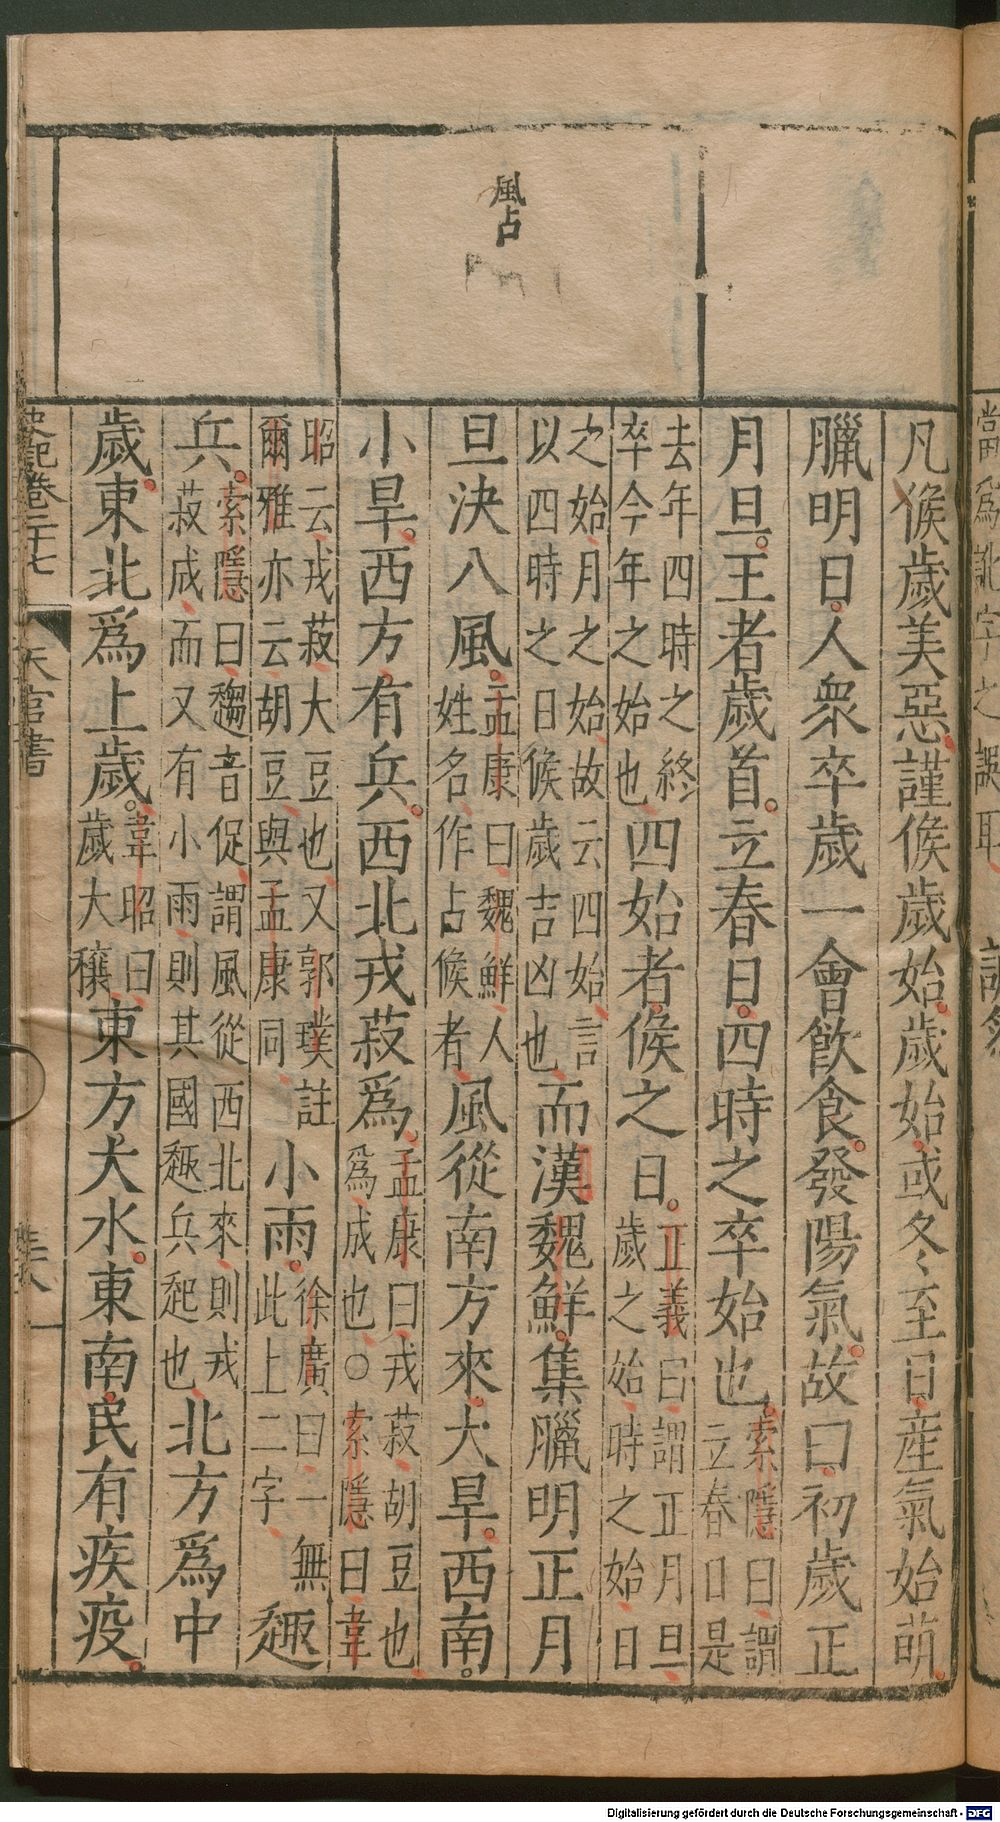 風占
凡候歲美惡謹候歲始。歲始或冬至日產氣始萌。
臘明日。人衆卒歲一會飲食。發陽氣。故曰初歲正
月旦。王者歲首。立春日。四時之卒始也。索隱曰謂立春日是
去年四時之終卒今年之始也四始者候之日。正義曰謂正月旦歲之始時之始日
之始月之始故云四始言以四時之日候歲吉凶也而漢魏鮮。集臘明正月
旦決八風。孟康曰魏鮮人姓名作占候者風從南方來。大旱。西南。
小旱。西方有兵。西北戎菽爲。孟康曰戎菽胡豆也爲成也〇索隱曰韋
昭云戎菽大豆也又郭璞註爾雅亦云胡豆與孟康同小雨。徐廣曰一無此上二字趣
兵。索隱曰趨音促謂風從西北來則戎菽成而又有小雨則其國趣兵起也北方爲中
歲。東北爲上歲。韋昭曰歲大穰東方大水。東南。民有疾疫。
史記卷二十七 天官書